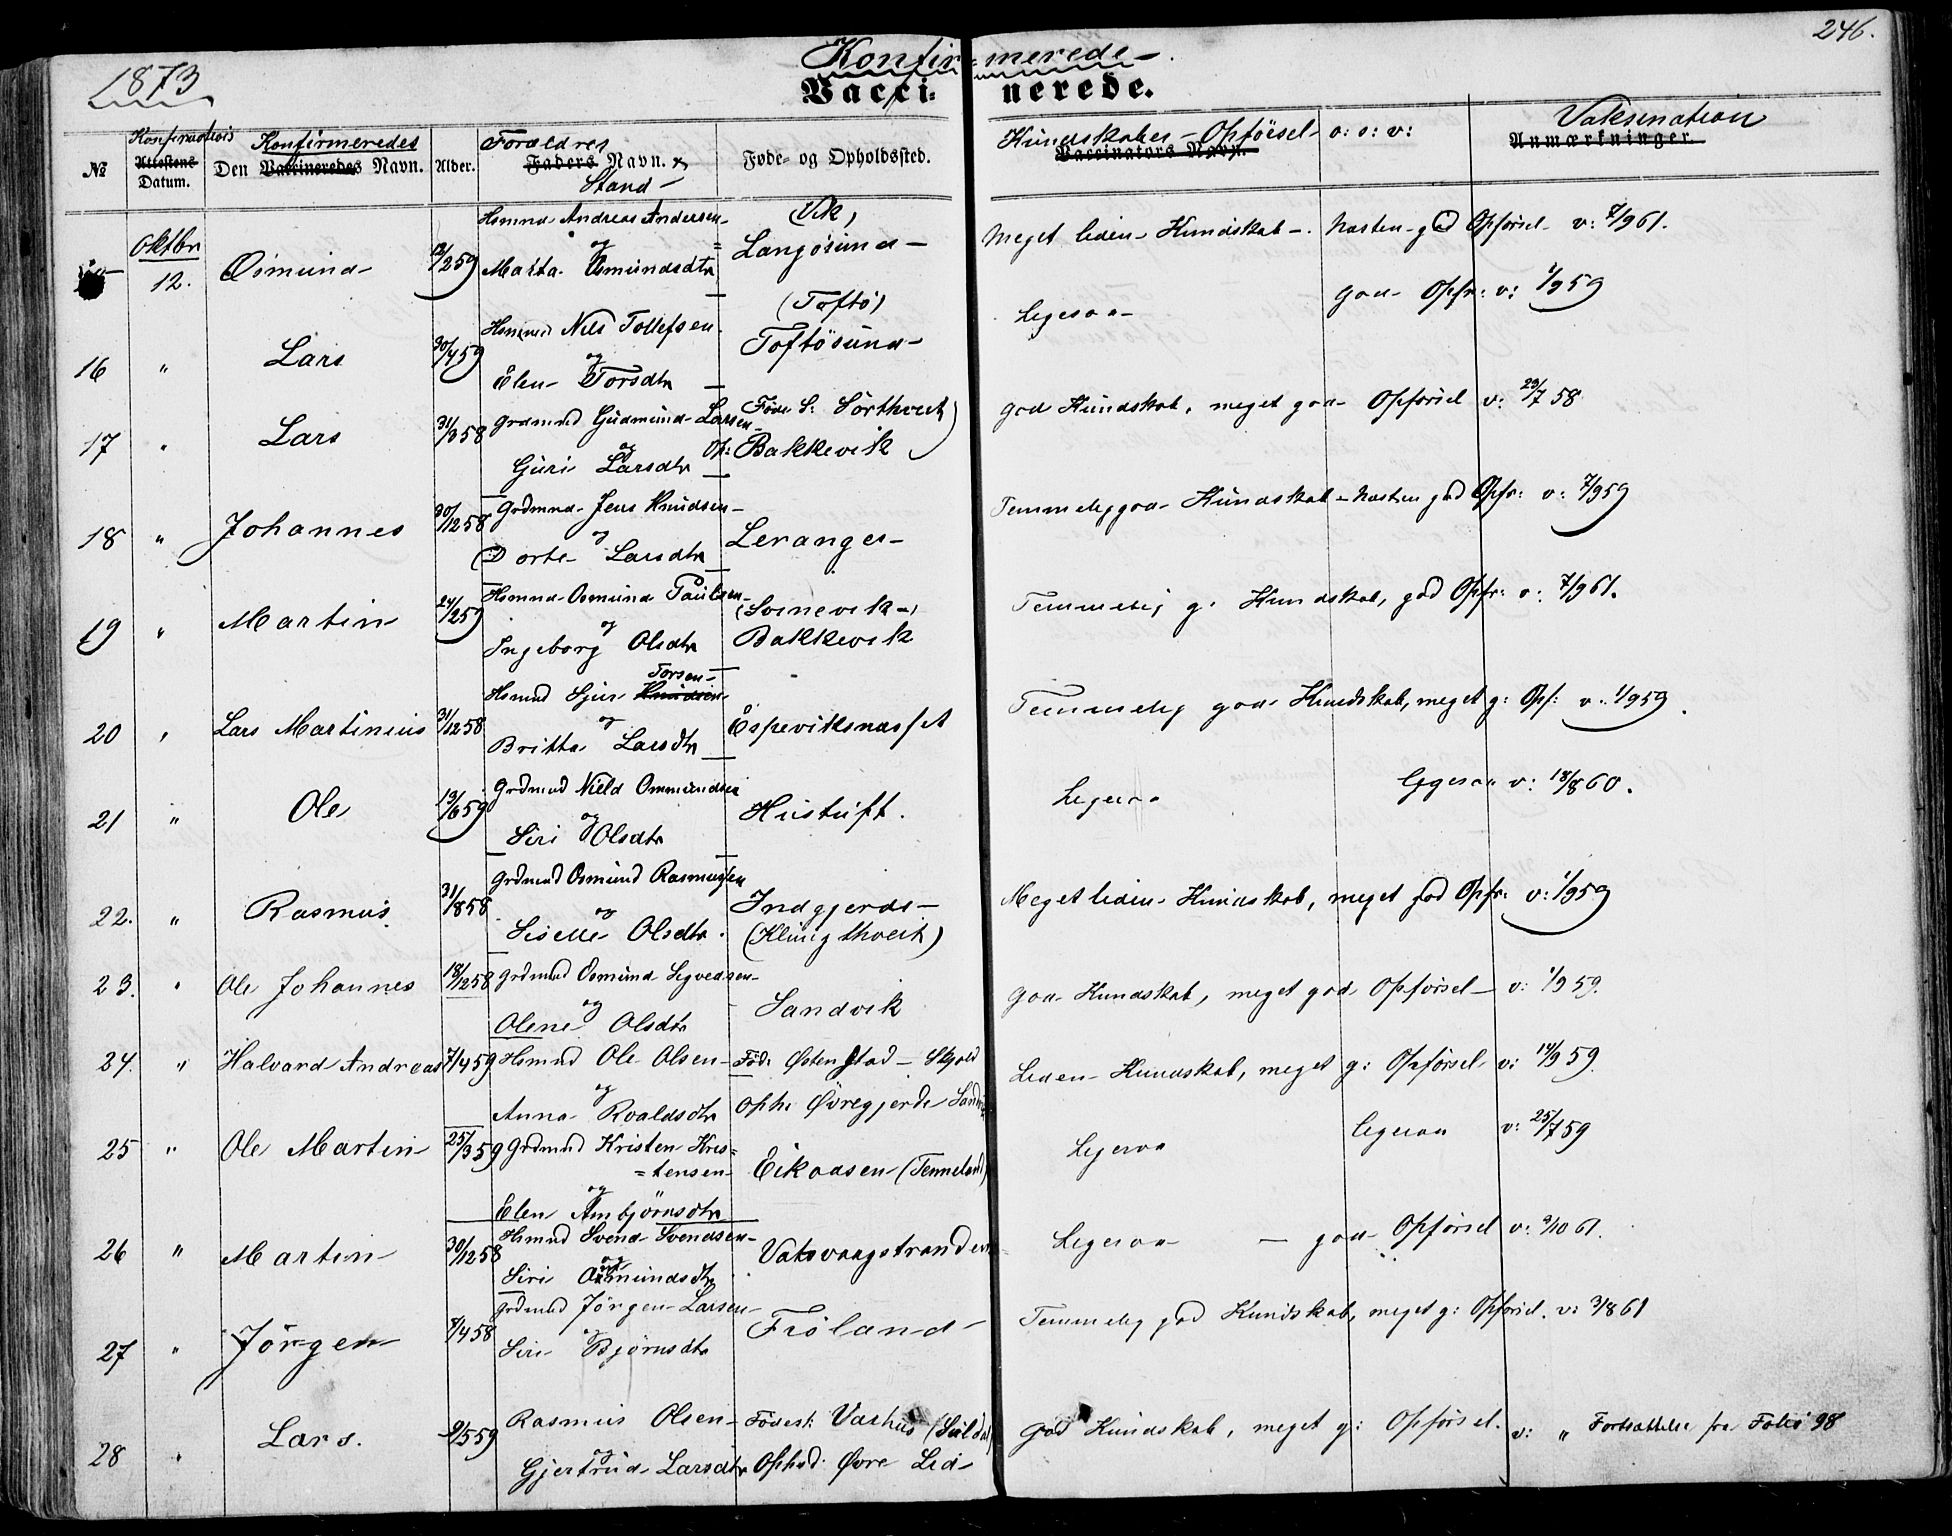 246.
1873
Konfir= merede
Vacci= nerede.
№
Konfirmations Attestens Datum.
Den Konfirmeredes Vaccineredes Navn.
Alder.
Forældres Faders Navn. & Stand
Føde- og Opholdssted.
Kundskaber - Opförsel o: s: v:
Vaccinators Navn.
Vaksination
Anmærkninger.
Oktbr 12. Osmund 12/2 59 Hsmnd Andreas Andersen og Marta Osmundsdtr (Vik) Langösund Meget liden Kundskab - Næsten god Opførsel v: 7/9 61.
16 " Lars 30/4 59 Hsmnd Nils Tollefsen og Elen Torsdtr (Toftö) Toftösund Ligesaa god Opfr: v: 1/9 59
17 " Lars 31/3 58 Grdmnd Gudmund Larsen og Guri Larsdtr Føde S: Sörthveit Op: Bakkevik God Kundskab, meget god Opførsel v: 23/7 58
18 " Johannes 30/12 58 Grdmnd Jens Knudsen og Dorte Larsdtr Leranger Temmelig god Kundskab - Næsten god Opfr: v: 7/9 59
19 " Martin 24/2 59 Hsmnd Osmund Paulsen og Ingeborg Olsdtr (Svinevik) Bakkevik Temmelig g: Kundskab, god Opfr: v: 7/9 61.
20 " Lars Martinius 31/12 58 Hsmnd Sjur Knudsen Torsen og Britta Larsdtr Espeviksnæsset Temmelig god Kundskab, meget g: Opf: v: 1/9 59.
21 " Ole 13/6 59 Grdmnd Nield Ommundsen og Siri Olsdtr Hustuft. Ligesaa ligesaa v: 18/8 60.
22. " Rasmus 31/8 58 Grdmnd Osmund Rasmussen og Siselle Olsdtr. Indgjerde (Klungthveit) Meget liden Kundskab, meget god Opfr: v: 1/9 59
23. " Ole Johannes 18/12 58 Grdmnd Osmund Sigvedsen og Olene Olsdtr Sandvik God Kundskab, meget god Opførsel v: 1/9 59.
24. " Halvard Andreas 7/4 59 Hsmnd Ole Olsen og Anna Roaldsdtr Föd: Østenstad - Skjold Oph: Övregjerde Liden Kundskab, meget g: Opførsel v: 14/9 59.
25 " Ole Martin 25/3 59 Grdmnd Kristen Kris=
=tensen og Elen Ambjörnsdtr Eikaasen (Tenneland) Ligesaa ligesaa v: 25/7 59
26 " Martin 30/12 58 Hsmnd Svend Svendsen og Siri Osmundsdtr Vatsvaagstranden Ligesaa - god Opførsel v: 9/10 61.
27 " Jörgen 8/4 58 Grdmnd Jörgen Larsen og Siri Bjørnsdtr Fröland Temmelig god Kundskab, meget g: Opførsel. v: 3/8 61
28 " Lars. 9/5 59 Rasmus Olsen og Gjertrud Larsdtr Födest: Varhus (Suldal) Ophod: Övre Lid God Kundskab, meget g: Opførsel. v: " Fortsættelse fra Folio 98